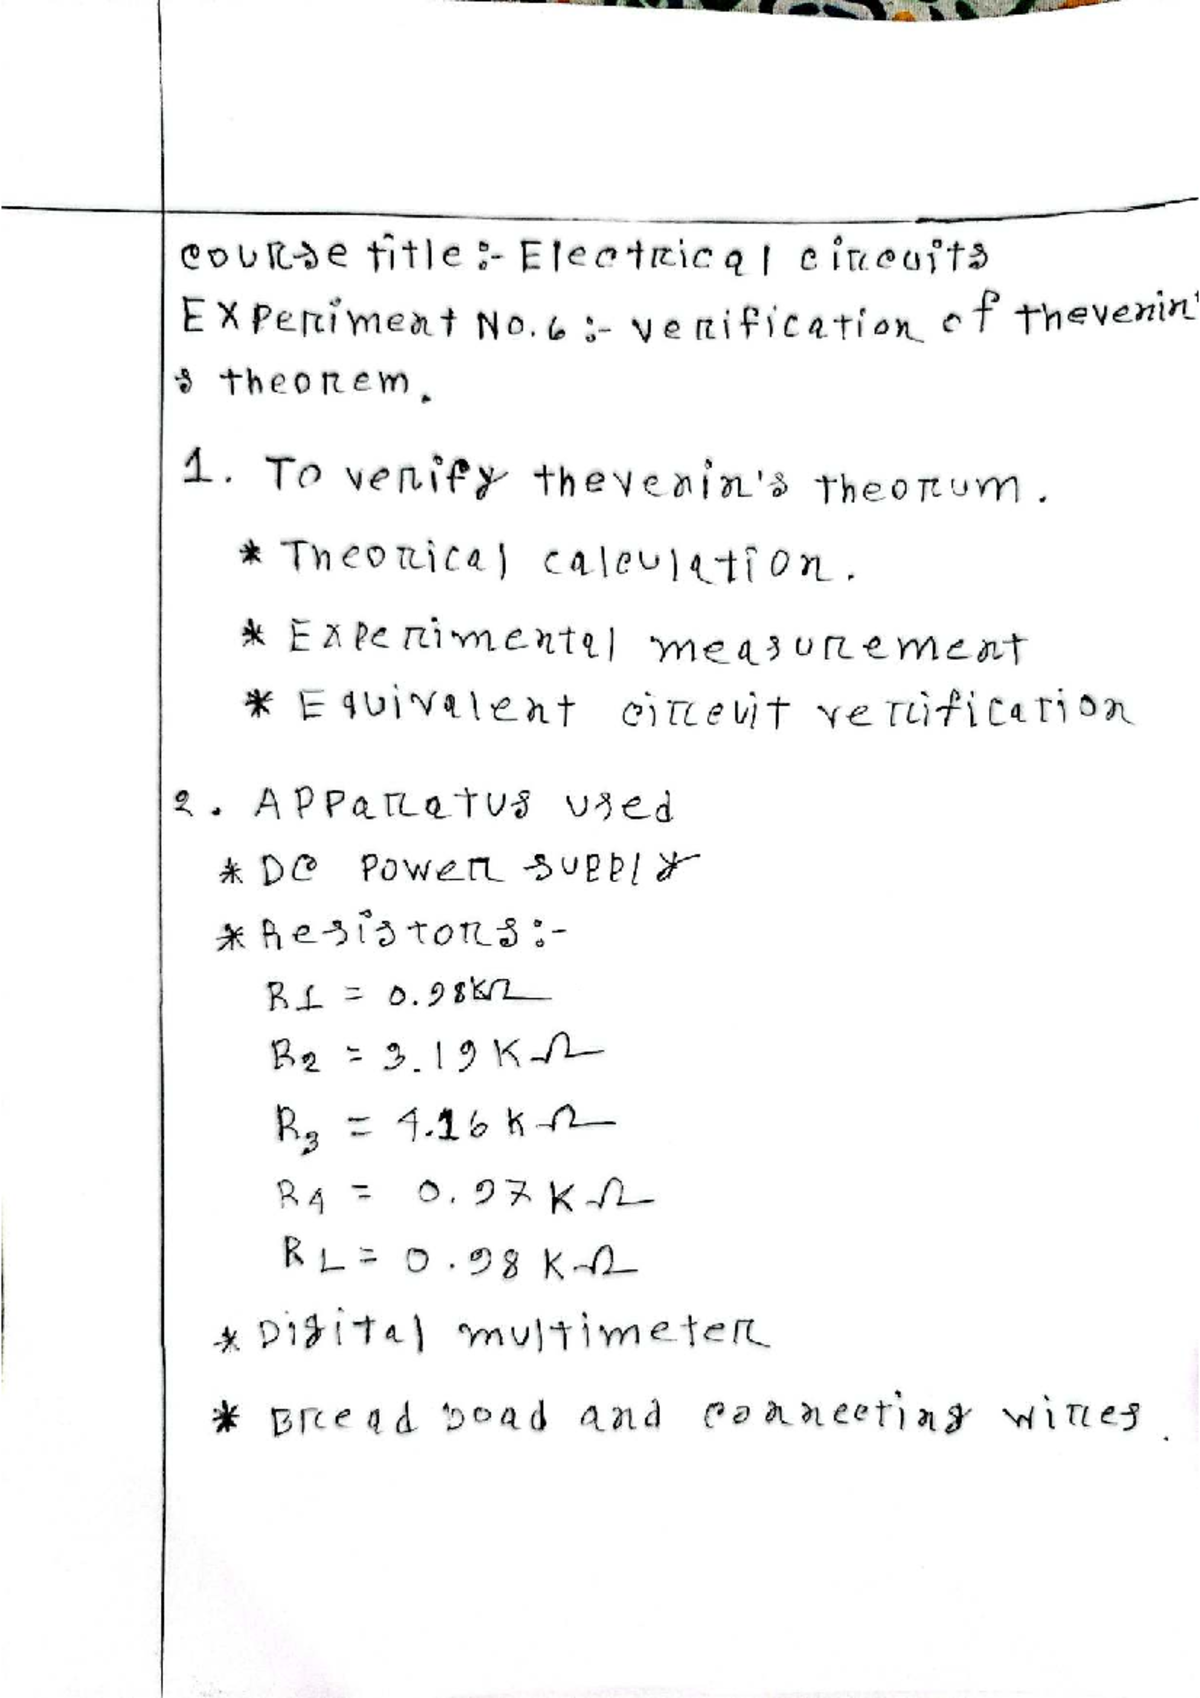 course title :- Electrical circuits
Experiment No. 6 :- verification of thevenin'
s theorem.
1. To verify thevenin's theorum.
* Theorical calculation.
* Experimental measurement
* Equivalent circuit verification
2. Apparatus used
* DC Power supply
* Resistors :-
R1 = 0.98kΩ
R2 = 3.19 KΩ
R3 = 4.16 KΩ
R4 = 0.97 KΩ
RL = 0.98 KΩ
* Digital multimeter
* Bread boad and connecting wires.